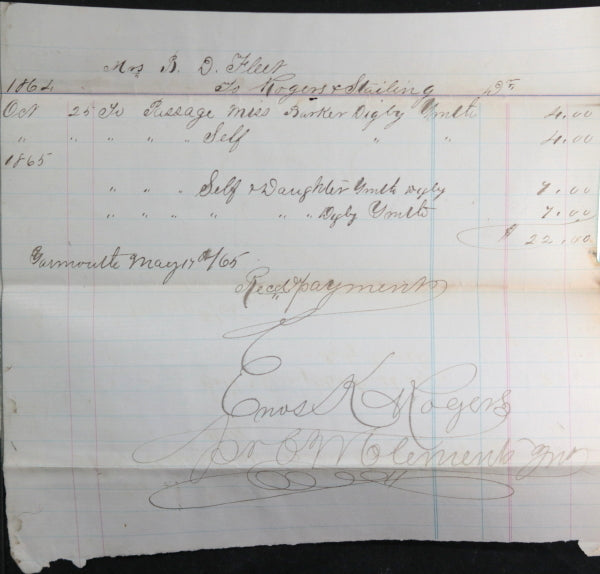 Mrs B. D. Fleet
1864 To Rogers & Stailing Dr
Oct 25 To Passage Miss Barker Digby Ymth 4.00
" " " " " Self " " 4.00
1865
" " " Self & Daughter Ymth Digby 7.00
" " " " " Digby Ymth 7.00
$ 22.00
Yarmouth May 17th/65
Rec'd payment
Enos K Rogers
pr C W Clements Jnr